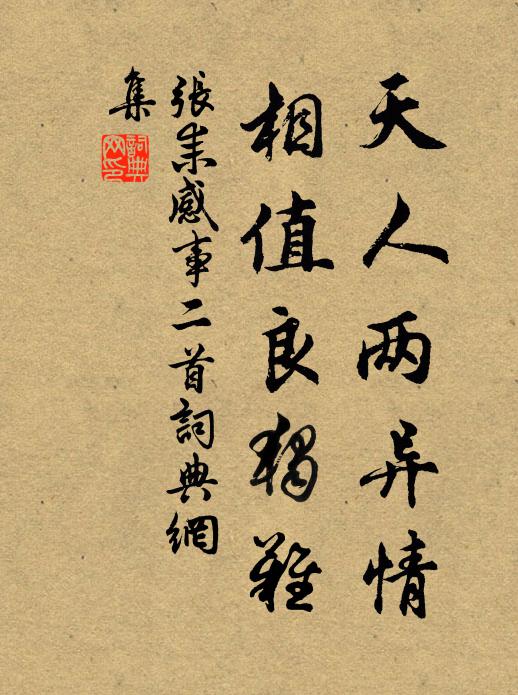 天人两异情
相值良獨難
張耒感事二首詞典網
集
詞典
网印